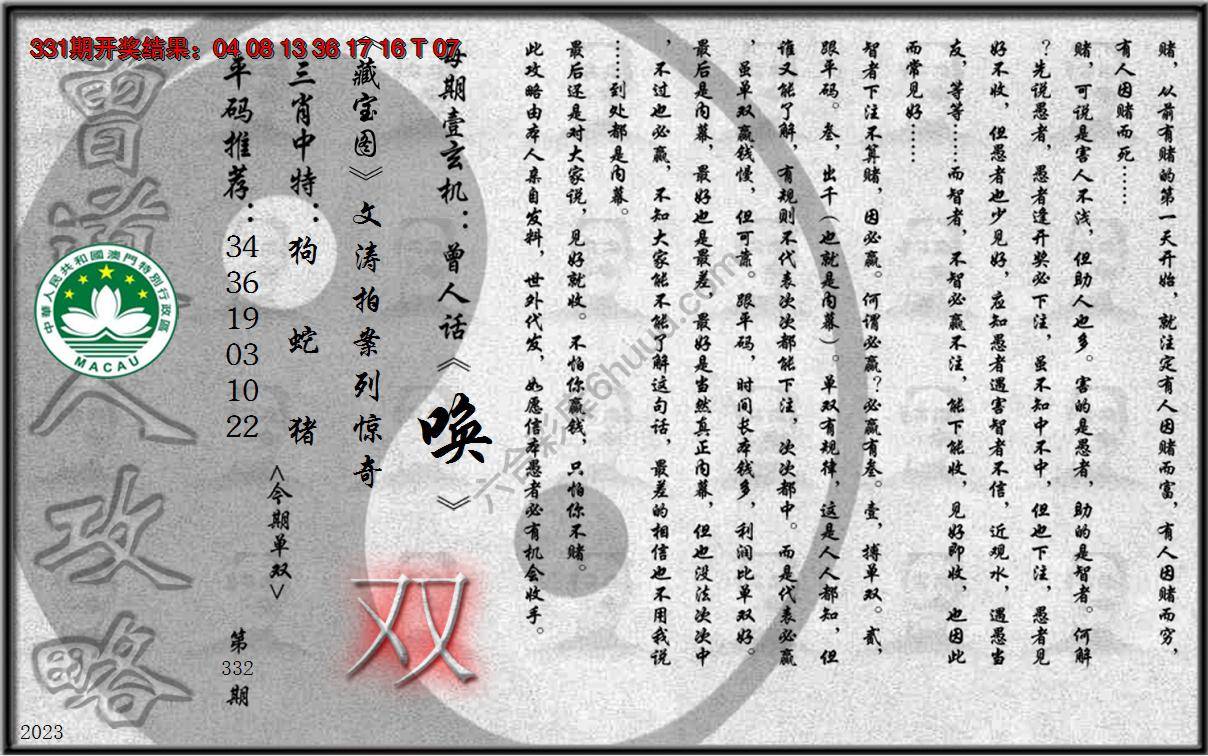 331期开奖结果：04 08 13 36 17 16 T 07
赌，从前有赌的第一天开始，就注定有人因赌而富，有人因赌而穷，
有人因赌而死……
赌，可说是害人不浅，但助人也多。害的是愚者，助的是智者。何解
？先说愚者，愚者逢开奖必下注，虽不知中不中，但也下注，愚者见
好不收，但愚者也少见好，应知愚者遇害智者不信，近观水，遇愚当
友，等等……而智者，不智必赢不注，能下能收，见好即收，也因此
而常见好……
智者下注不算赌，因必赢。何谓必赢？必赢有叁。壹，搏单双。贰，
跟平码。叁，出千（也就是内幕）。单双有规律，这是人人都知，但
谁又能了解，有规则不代表次次都能下注，次次都中。而是代表必赢
，虽单双赢钱慢，但可靠。跟平码，时间长本钱多，利润比单双好。
最后是内幕，最好也是最差，最好是当然真正内幕，但也没法次次中
，不过也必赢，不知大家能不能了解这句话，最差的相信也不用我说
……到处都是内幕。
最后还是对大家说，见好就收。不怕你赢钱，只怕你不赌。
此攻略由本人亲自发料，世外代发，如愿信本愚者必有机会收手。
每期壹玄机：曾人话《唤》
《藏宝图》文涛拍案列惊奇
双
三肖中特：狗 蛇 猪
<今期单双>
平码推荐：34 36 19 03 10 22
第332期
曾道人攻略
中華人民共和國澳門特別行政區
MACAU
六合彩库6huuu.com
2023